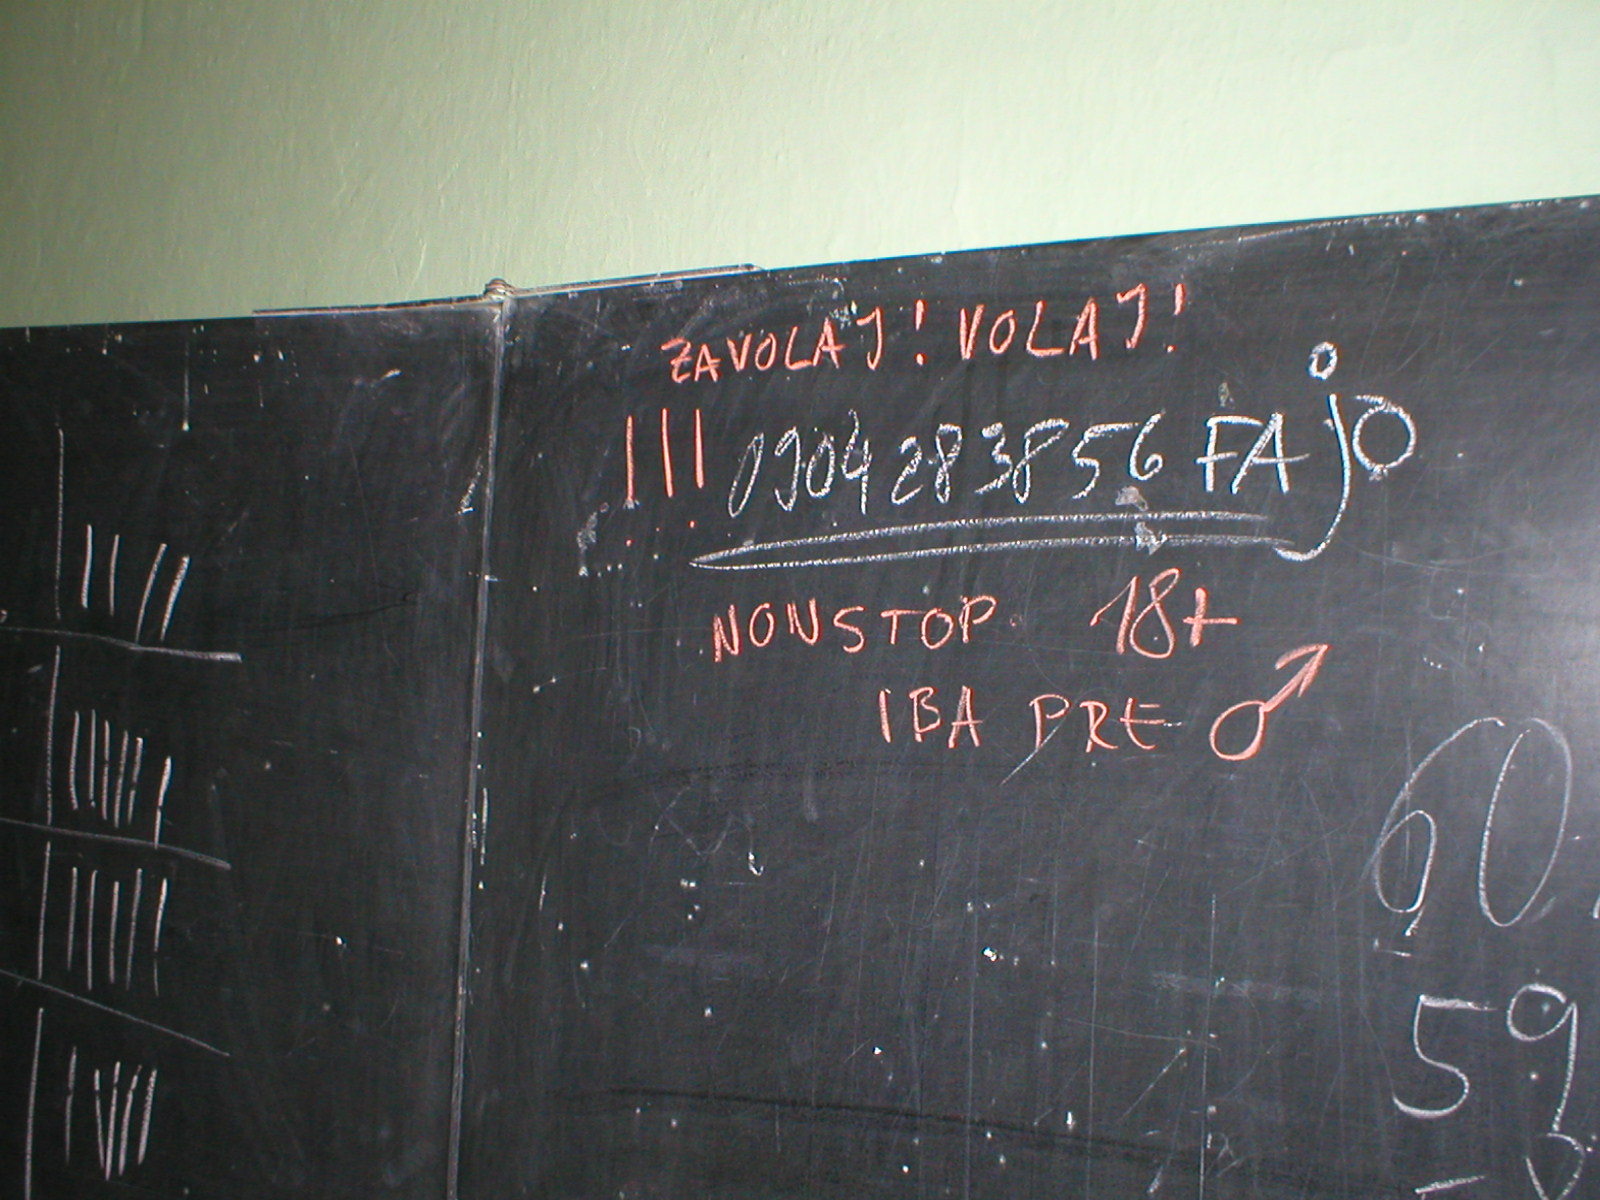 ZAVOLAJ! VOLAJ!
!!! 0904 283856 FAjO
NONSTOP 18+
IBA PRE ♂
60
59